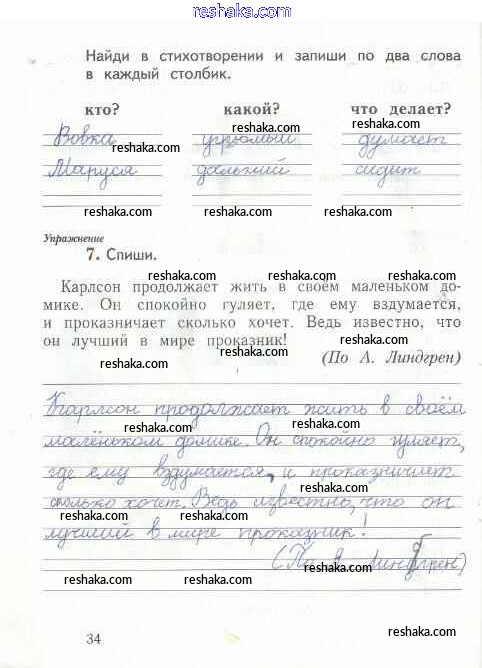 reshaka.com
Найди в стихотворении и запиши по два слова
в каждый столбик.
reshaka.com
кто? какой? что делает?
reshaka.com reshaka.com
Вовка угрюмый думает
reshaka.com
Маруся дальний сидит
reshaka.com reshaka.com
reshaka.com reshaka.com reshaka.com
Упражнение
7. Спиши.
reshaka.com
reshaka.com reshaka.com
Карлсон продолжает жить в своём маленьком до-
мике. Он спокойно гуляет, где ему вздумается,
и проказничает сколько хочет. Ведь известно, что
он лучший в мире проказник! reshaka.com
reshaka.com (По А. Линдгрен)
reshaka.com
Карлсон продолжает жить в своём
reshaka.com
маленьком домике. Он спокойно гуляет,
reshaka.com reshaka.com
где ему вздумается, и проказничает
reshaka.com
сколько хочет. Ведь известно, что он
reshaka.com reshaka.com
лучший в мире проказник!
reshaka.com
(По А Линдгрен)
reshaka.com reshaka.com
34
reshaka.com
reshaka.com